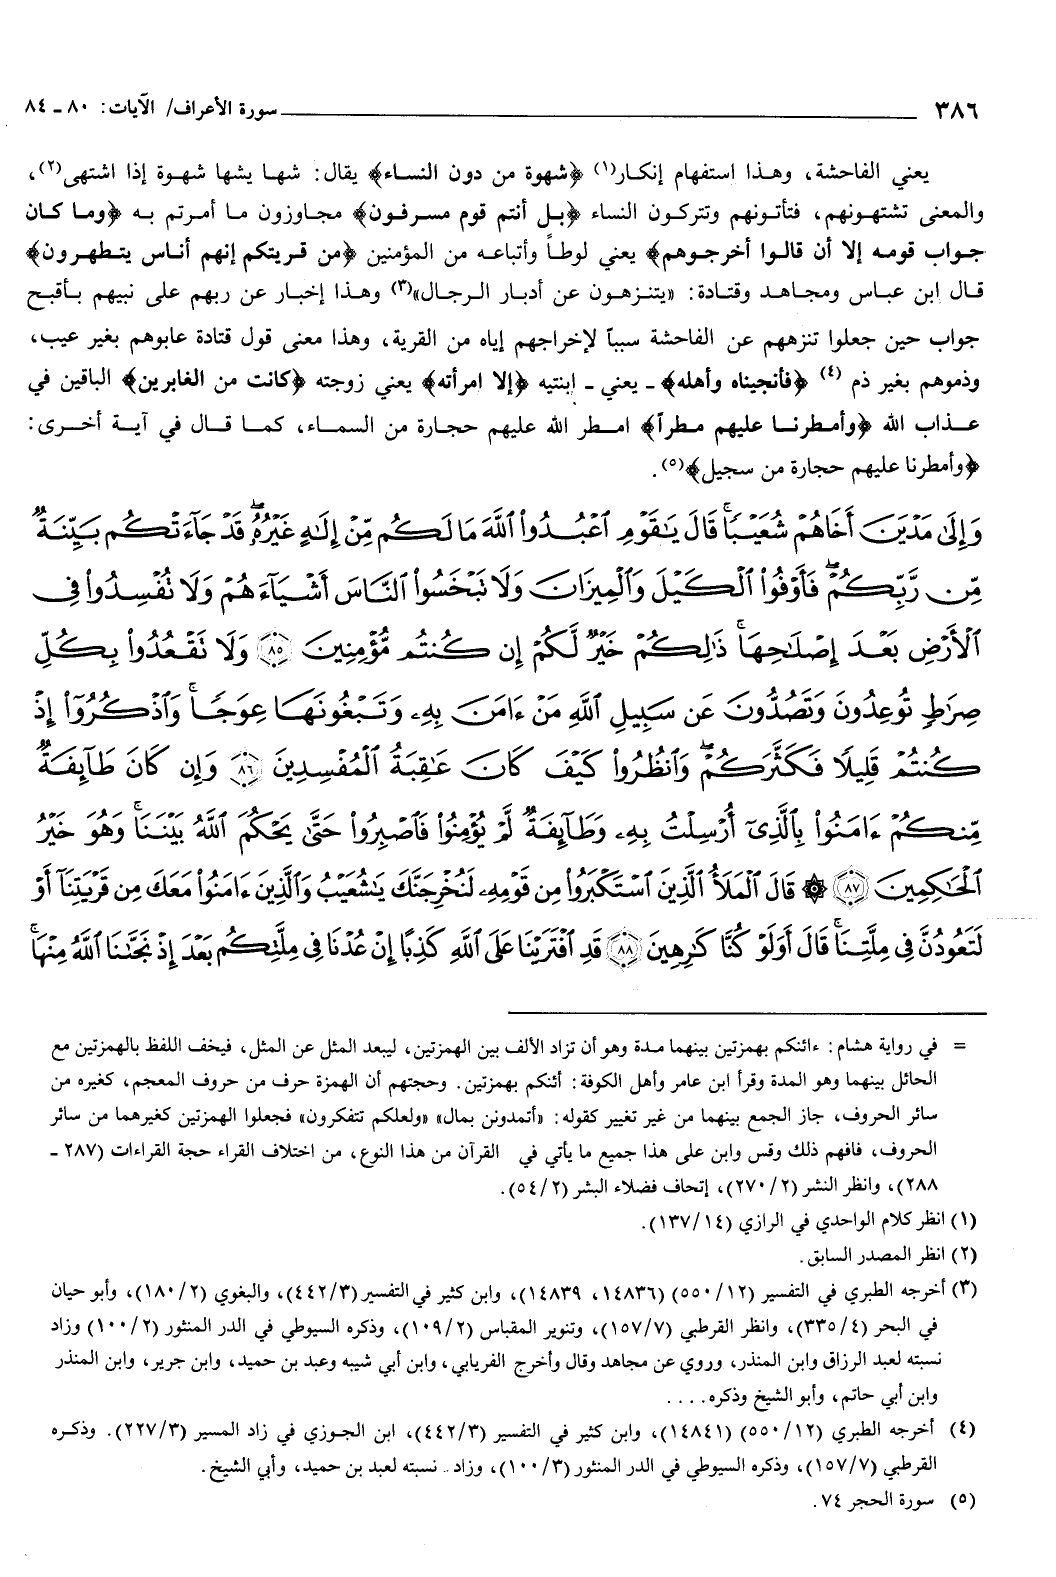 ٣٨٦ سورة الأعراف/ الآيات: ٨٠ ـ ٨٤
يعني الفاحشة، وهذا استفهام إنكار(١) ﴿شهوة من دون النساء﴾ يقال: شها يشها شهوة إذا اشتهى(٢)،
والمعنى تشتهونهم، فتأتونهم وتتركون النساء ﴿بل أنتم قوم مسرفون﴾ مجاوزون ما أمرتم به ﴿وما كان
جواب قومه إلا أن قالوا أخرجوهم﴾ يعني لوطاً وأتباعه من المؤمنين ﴿من قريتكم إنهم أناس يتطهرون﴾
قال ابن عباس ومجاهد وقتادة: «يتنزهون عن أدبار الرجال»(٣) وهذا إخبار عن ربهم على نبيهم بأقبح
جواب حين جعلوا تنزههم عن الفاحشة سبباً لإخراجهم إياه من القرية، وهذا معنى قول قتادة عابوهم بغير عيب،
وذموهم بغير ذم (٤) ﴿فأنجيناه وأهله﴾ ـ يعني ـ ابنتيه ﴿إلا امرأته﴾ يعني زوجته ﴿كانت من الغابرين﴾ الباقين في
عذاب الله ﴿وأمطرنا عليهم مطراً﴾ امطر الله عليهم حجارة من السماء، كما قال في آية أخرى:
﴿وأمطرنا عليهم حجارة من سجيل﴾(٥).
وَإِلَىٰ مَدْيَنَ أَخَاهُمْ شُعَيْبًا ۚ قَالَ يَٰقَوْمِ ٱعْبُدُوا۟ ٱللَّهَ مَا لَكُم مِّنْ إِلَٰهٍ غَيْرُهُۥ ۖ قَدْ جَآءَتْكُم بَيِّنَةٌ
مِّن رَّبِّكُمْ ۖ فَأَوْفُوا۟ ٱلْكَيْلَ وَٱلْمِيزَانَ وَلَا تَبْخَسُوا۟ ٱلنَّاسَ أَشْيَآءَهُمْ وَلَا تُفْسِدُوا۟ فِى
ٱلْأَرْضِ بَعْدَ إِصْلَٰحِهَا ۚ ذَٰلِكُمْ خَيْرٌ لَّكُمْ إِن كُنتُم مُّؤْمِنِينَ ٨٥ وَلَا تَقْعُدُوا۟ بِكُلِّ
صِرَٰطٍ تُوعِدُونَ وَتَصُدُّونَ عَن سَبِيلِ ٱللَّهِ مَنْ ءَامَنَ بِهِۦ وَتَبْغُونَهَا عِوَجًا ۚ وَٱذْكُرُوٓا۟ إِذْ
كُنتُمْ قَلِيلًا فَكَثَّرَكُمْ ۖ وَٱنظُرُوا۟ كَيْفَ كَانَ عَٰقِبَةُ ٱلْمُفْسِدِينَ ٨٦ وَإِن كَانَ طَآئِفَةٌ
مِّنكُمْ ءَامَنُوا۟ بِٱلَّذِىٓ أُرْسِلْتُ بِهِۦ وَطَآئِفَةٌ لَّمْ يُؤْمِنُوا۟ فَٱصْبِرُوا۟ حَتَّىٰ يَحْكُمَ ٱللَّهُ بَيْنَنَا ۚ وَهُوَ خَيْرُ
ٱلْحَٰكِمِينَ ٨٧ ۞ قَالَ ٱلْمَلَأُ ٱلَّذِينَ ٱسْتَكْبَرُوا۟ مِن قَوْمِهِۦ لَنُخْرِجَنَّكَ يَٰشُعَيْبُ وَٱلَّذِينَ ءَامَنُوا۟ مَعَكَ مِن قَرْيَتِنَآ أَوْ
لَتَعُودُنَّ فِى مِلَّتِنَا ۚ قَالَ أَوَلَوْ كُنَّا كَٰرِهِينَ ٨٨ قَدِ ٱفْتَرَيْنَا عَلَى ٱللَّهِ كَذِبًا إِنْ عُدْنَا فِى مِلَّتِكُم بَعْدَ إِذْ نَجَّىٰنَا ٱللَّهُ مِنْهَا ۚ
= في رواية هشام: ءائنكم بهمزتين بينهما مدة وهو أن تزاد الألف بين الهمزتين، ليبعد المثل عن المثل، فيخف اللفظ بالهمزتين مع
الحائل بينهما وهو المدة وقرأ ابن عامر وأهل الكوفة: أئنكم بهمزتين. وحجتهم أن الهمزة حرف من حروف المعجم، كغيره من
سائر الحروف، جاز الجمع بينهما من غير تغيير كقوله: «أتمدونن بمال» «ولعلكم تتفكرون» فجعلوا الهمزتين كغيرهما من سائر
الحروف، فافهم ذلك وقس وابن على هذا جميع ما يأتي في القرآن من هذا النوع، من اختلاف القراء حجة القراءات (٢٨٧ ـ
٢٨٨)، وانظر النشر (٢/ ٢٧٠)، إتحاف فضلاء البشر (٢/ ٥٤).
(١) انظر كلام الواحدي في الرازي (١٤/ ١٣٧).
(٢) انظر المصدر السابق.
(٣) أخرجه الطبري في التفسير (١٢/ ٥٥٠) (١٤٨٣٦، ١٤٨٣٩)، وابن كثير في التفسير (٣/ ٤٤٢)، والبغوي (٢/ ١٨٠)، وأبو حيان
في البحر (٤/ ٣٣٥)، وانظر القرطبي (٧/ ١٥٧)، وتنوير المقباس (٢/ ١٠٩)، وذكره السيوطي في الدر المنثور (٢/ ١٠٠) وزاد
نسبته لعبد الرزاق وابن المنذر، وروي عن مجاهد وقال وأخرج الفريابي، وابن أبي شيبه وعبد بن حميد، وابن جرير، وابن المنذر
وابن أبي حاتم، وأبو الشيخ وذكره....
(٤) أخرجه الطبري (١٢/ ٥٥٠) (١٤٨٤١)، وابن كثير في التفسير (٣/ ٤٤٢)، ابن الجوزي في زاد المسير (٣/ ٢٢٧). وذكره
القرطبي (٧/ ١٥٧)، وذكره السيوطي في الدر المنثور (٣/ ١٠٠)، وزاد نسبته لعبد بن حميد، وأبي الشيخ.
(٥) سورة الحجر ٧٤.